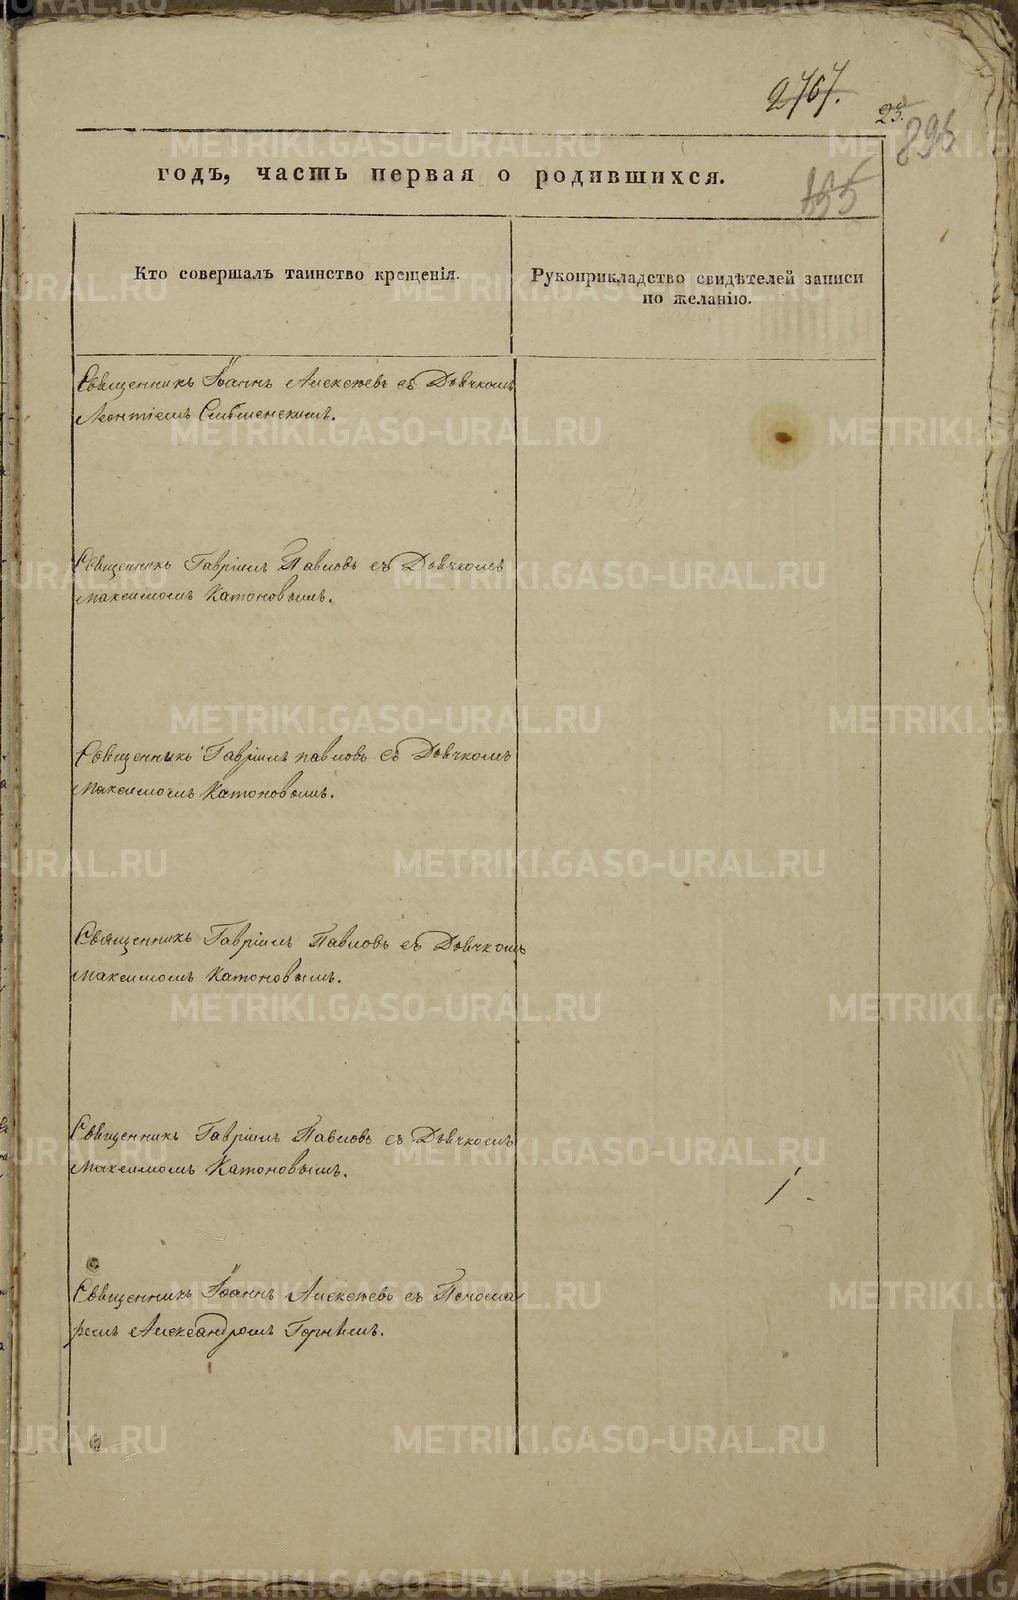 2767.
25.
896
855
годъ, часть первая о родившихся.
Кто совершалъ таинство крещенія.
Рукоприкладство свидѣтелей записи
по желанію.
Священникъ Іоаннъ Алексѣевъ съ Дьячкомъ
Леонтіемъ
Священникъ Гавріилъ Павловъ съ Дьячкомъ
Максимомъ Катоновымъ.
Священникъ Гавріилъ Павловъ съ Дьячкомъ
Максимомъ Катоновымъ.
Священникъ Гавріилъ Павловъ съ Дьячкомъ
Максимомъ Катоновымъ.
Священникъ Гавріилъ Павловъ съ Дьячкомъ
Максимомъ Катоновымъ.
Священникъ Іоаннъ Алексѣевъ съ Понома
ремъ Александромъ
METRIKI.GASO-URAL.RU